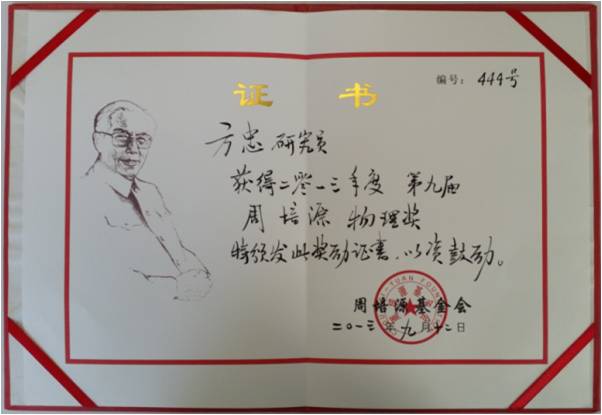 编号：444号
证 书
方忠 研究员
获得二零一三年度 第九届
周培源 物理奖
特颁发此奖励证书，以资鼓励。
周培源基金会
二〇一三年九月十二日